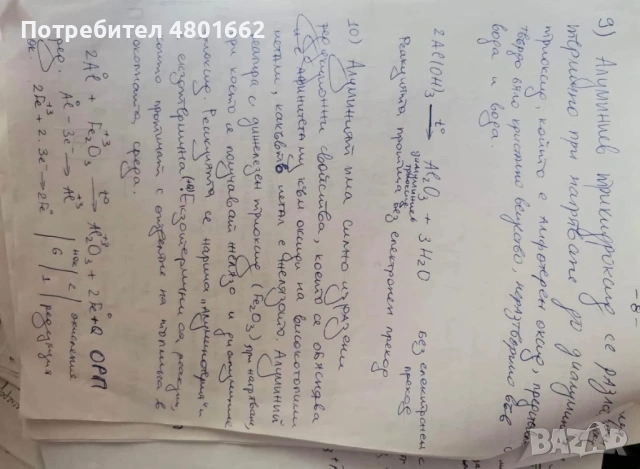 Потребител 4801662
-8-
9) Алуминиев трихидроксид се разла
термично при нагряване до диалумин
триоксид, който е амфотерен оксид, представ
твърдо бяло прахообразно вещество, неразтворимо във
вода и вода.
2Al(OH)₃ →t° Al₂O₃ + 3H₂O без електронен
диалуминиев триоксид преход
Реакцията протича без електронен преход
10) Алуминият има силно изразени
редукционни свойства, което се обяснява
с афинитета му към оксиди на високотопими
метали, какъвто метал е желязото. Алуминият
реагира с дижелезен триоксид (Fe₂O₃) при нагряване,
при което се получават желязо и диалуминиев
триоксид. Реакцията се нарича „алуминотермия" и
екзотермична (+Q). Екзотермични са реакции,
които протичат с отделяне на топлина в
околната среда.
2Al + Fe₂O₃ →t° Al₂O₃ + 2Fe + Q ОРП
ред. Al - 3e⁻ → Al⁺³ | 2 | окисление
2Fe⁺³ + 2.3e⁻ → 2Fe⁰ | 6 | 1 | редукция
BAZAR
bg